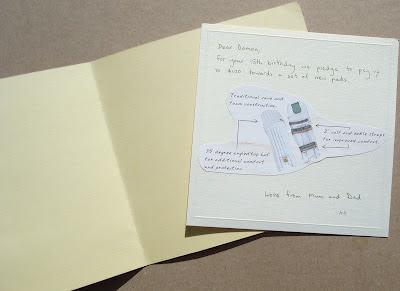 Dear Damon,
For your 15th birthday we pledge to pay up
to $100 towards a set of new pads.
Traditional cane and
foam construction.
2" calf and ankle straps
for improved comfort.
for additional comfort
and protection.
Love from Mum and Dad